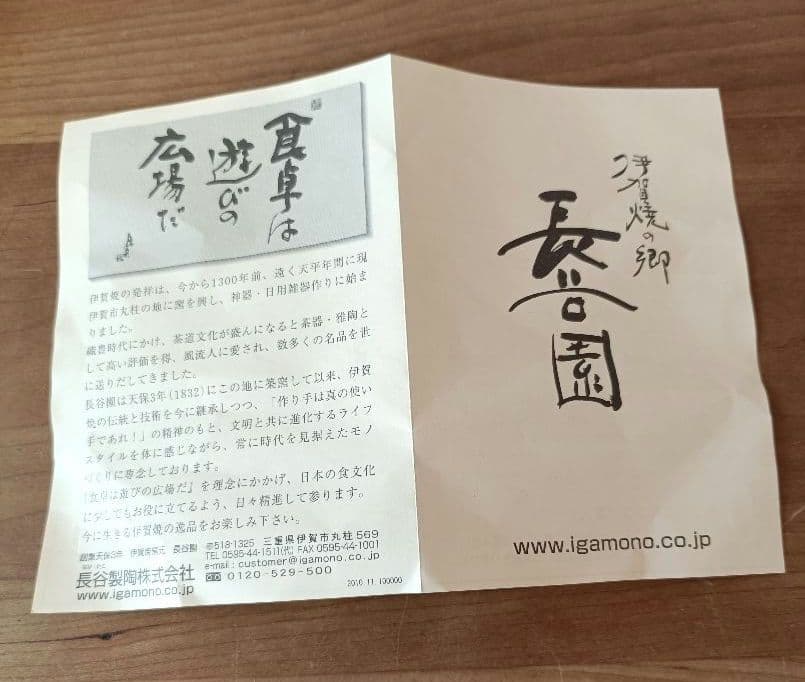 食卓は
遊びの
広場だ
伊賀焼の発祥は、今から1300年前、遠く天平年間に現
伊賀市丸柱の地に窯を興し、神器・日用雑器作りに始ま
りました。
織豊時代にかけ、茶道文化が盛んになると茶器・雅陶と
して高い評価を得、風流人に愛され、数多くの名品を世
に送りだしてきました。
長谷園は天保3年(1832)にこの地に築窯して以来、伊賀
焼の伝統と技術を今に継承しつつ、「作り手は真の使い
手であれ！」の精神のもと、文明と共に進化するライフ
スタイルを体に感じながら、常に時代を見据えたモノ
づくりに専念しております。
「食卓は遊びの広場だ」を理念にかかげ、日本の食文化
に少しでもお役に立てるよう、日々精進して参ります。
今に生きる伊賀焼の逸品をお楽しみ下さい。
創業天保3年 伊賀焼窯元 長谷園
長谷製陶株式会社
www.igamono.co.jp
〒518-1325 三重県伊賀市丸柱569
TEL 0595-44-1511(代) FAX 0595-44-1001
e-mail : customer@igamono.co.jp
0120-529-500
伊賀焼の郷
長谷園
www.igamono.co.jp